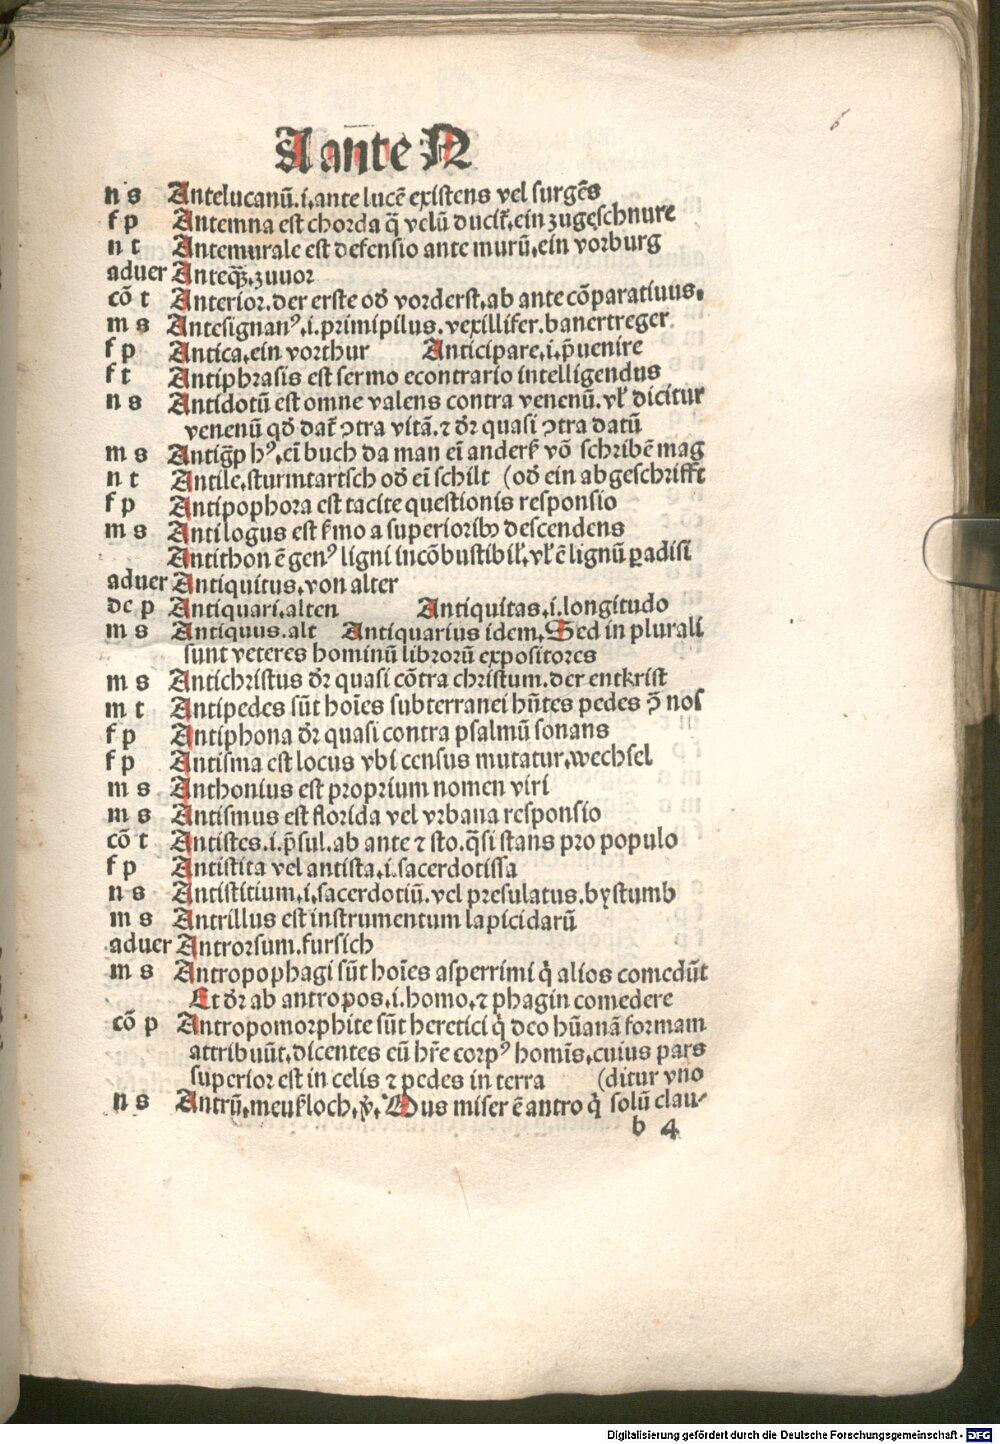 6
A ante N
n s Antelucanū.i.ante lucē existens vel surgēs
f p Antemna est chorda q̄ velū ducit̄.ein zugeschnure
n t Antemurale est defensio ante murū.ein vorburg
aduer Anteq̄ꝫ.zuuor
cō t Anterior.der erste od̄ vorderst.ab ante cōparatiuus.
m s Antesignanꝰ.i.primipilus.vexillifer.banertreger
f p Antica.ein vorthur Anticipare.i.p̄uenire
f t Antiphrasis est sermo econtrario intelligendus
n s Antidotū est omne valens contra venenū.vl̄ dicitur
venenū qd̄ dat̄ ꝯtra vitā.⁊ dr̄ quasi ꝯtra datū
m s Antiḡp hꝰ.ei̅ buch da man ei̅ anderk̄ vō schribē mag
n t Antile.sturmtartsch od̄ ei̅ schilt (od̄ ein abgeschrifft
f p Antipophora est tacite questionis responsio
m s Antilogus est s̄mo a superioribꝫ descendens
Antithon ē genꝰ ligni incōbustibil̄.vl̄ ē lignū ꝑadisi
aduer Antiquitus.von alter
dc p Antiquari.alten Antiquitas.i.longitudo
m s Antiquus.alt Antiquarius idem.Sed in plurali
sunt veteres hominū librorū expositores
m s Antichristus dr̄ quasi cōtra christum.der entkrist
m t Antipedes sūt hoīes subterranei hn̄tes pedes ꝯ̄ nos
f p Antiphona dr̄ quasi contra psalmū sonans
f p Antisma est locus vbi census mutatur.wechsel
m s Anthonius est proprium nomen viri
m s Antismus est florida vel vrbana responsio
cō t Antistes.i.p̄sul.ab ante ⁊ sto.q̄si stans pro populo
f p Antistita vel antista.i.sacerdotissa
n s Antistitium.i.sacerdotiū.vel presulatus.bystumb
m s Antrillus est instrumentum lapicidarū
aduer Antrorsum.fursich
m s Antropophagi sūt hoīes asperrimi q̄ alios comedūt
Et dr̄ ab antropos.i.homo.⁊ phagin comedere
cō p Antropomorphite sūt heretici q̄ deo hūanā formam
attribuūt.dicentes eū hr̄e corpꝰ homīs.cuius pars
superior est in celis ⁊ pedes in terra (ditur vno
n s Antrū.meuſloch.v̄.Mus miser ē antro q̄ solū clau-
b 4
Digitalisierung gefördert durch die Deutsche Forschungsgemeinschaft - DFG